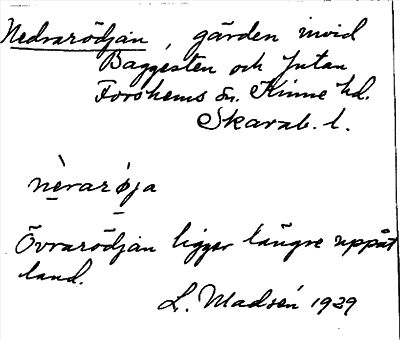 Nedrarödjan, gärden invid
Baggesten och Jutan
Forshems sn. Kinne hd.
Skarab. l.
nèrarøja
Övrarödjan ligger längre uppåt
land.
L. Madsén 1929